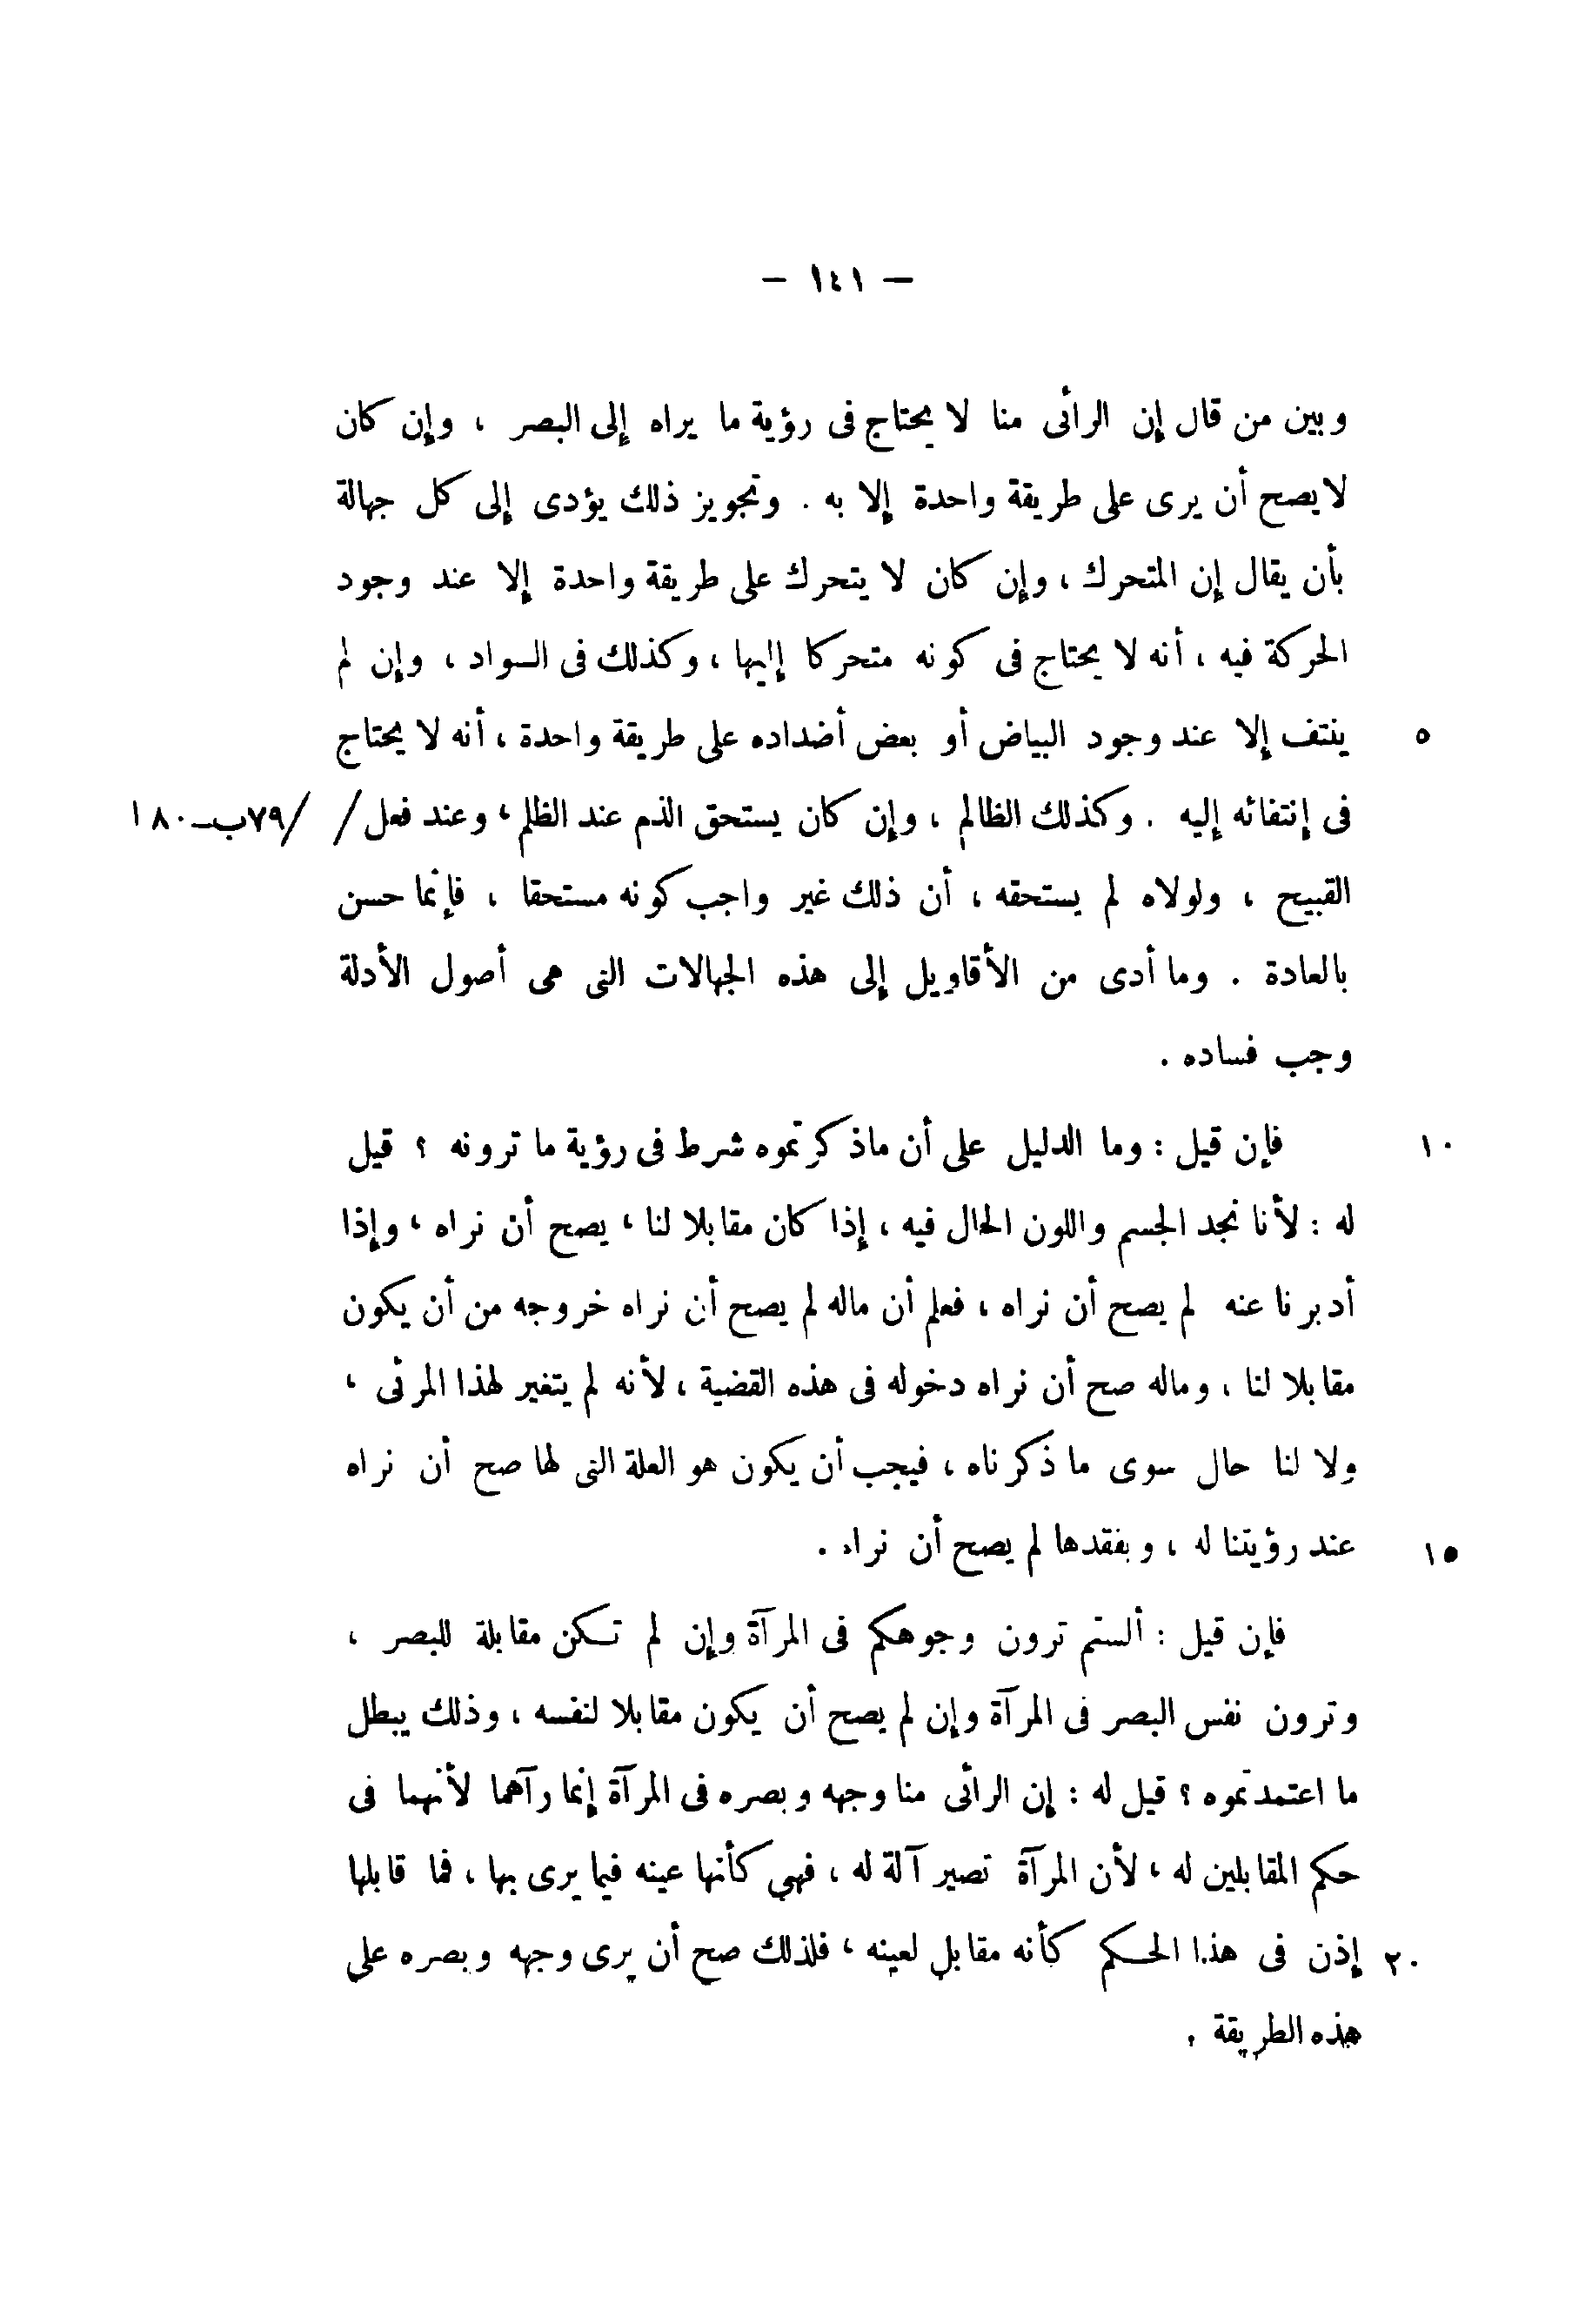 — ١٤١ —
وبين من قال إن الرائى منا لا يحتاج فى رؤية ما يراه إلى البصر ، وإن كان
لايصح أن يرى على طريقة واحدة إلا به . وتجويز ذلك يؤدى إلى كل جهالة
بأن يقال إن المتحرك ، وإن كان لا يتحرك على طريقة واحدة إلا عند وجود
الحركة فيه ، أنه لا يحتاج فى كونه متحركا إليها ، وكذلك فى السواد ، وإن لم
٥ ينتف إلا عند وجود البياض أو بعض أضداده على طريقة واحدة ، أنه لا يحتاج
فى إنتفائه إليه . وكذلك الظالم ، وإن كان يستحق الذم عند الظلم ، وعند فعل / /٧٩ب-٨٠ ا
القبيح ، ولولاه لم يستحقه ، أن ذلك غير واجب كونه مستحقا ، فإنما حسن
بالعادة . وما أدى من الأقاويل إلى هذه الجهالات التى هى أصول الأدلة
وجب فساده .
١٠ فإن قيل : وما الدليل على أن ماذكرتموه شرط فى رؤية ما ترونه ؟ قيل
له : لأنا نجد الجسم واللون الحال فيه ، إذا كان مقابلا لنا ، يصح أن نراه ، وإذا
أدبرنا عنه لم يصح أن نراه ، فعلم أن ماله لم يصح أن نراه خروجه من أن يكون
مقابلا لنا ، وماله صح أن نراه دخوله فى هذه القضية ، لأنه لم يتغير لهذا المرئى ،
ولا لنا حال سوى ما ذكرناه ، فيجب أن يكون هو العلة التى لها صح أن نراه
١٥ عند رؤيتنا له ، وبفقدها لم يصح أن نراه .
فإن قيل : ألستم ترون وجوهكم فى المرآة وإن لم تكن مقابلة للبصر ،
وترون نفس البصر فى المرآة وإن لم يصح أن يكون مقابلا لنفسه ، وذلك يبطل
ما اعتمدتموه ؟ قيل له : إن الرائى منا وجهه وبصره فى المرآة إنما رآهما لأنهما فى
حكم المقابلين له ، لأن المرآة تصير آلة له ، فهى كأنها عينه فيما يرى بها ، فما قابلها
٢٠ إذن فى هذا الحكم كأنه مقابل لعينه ، فلذلك صح أن يرى وجهه وبصره على
هذه الطريقة .